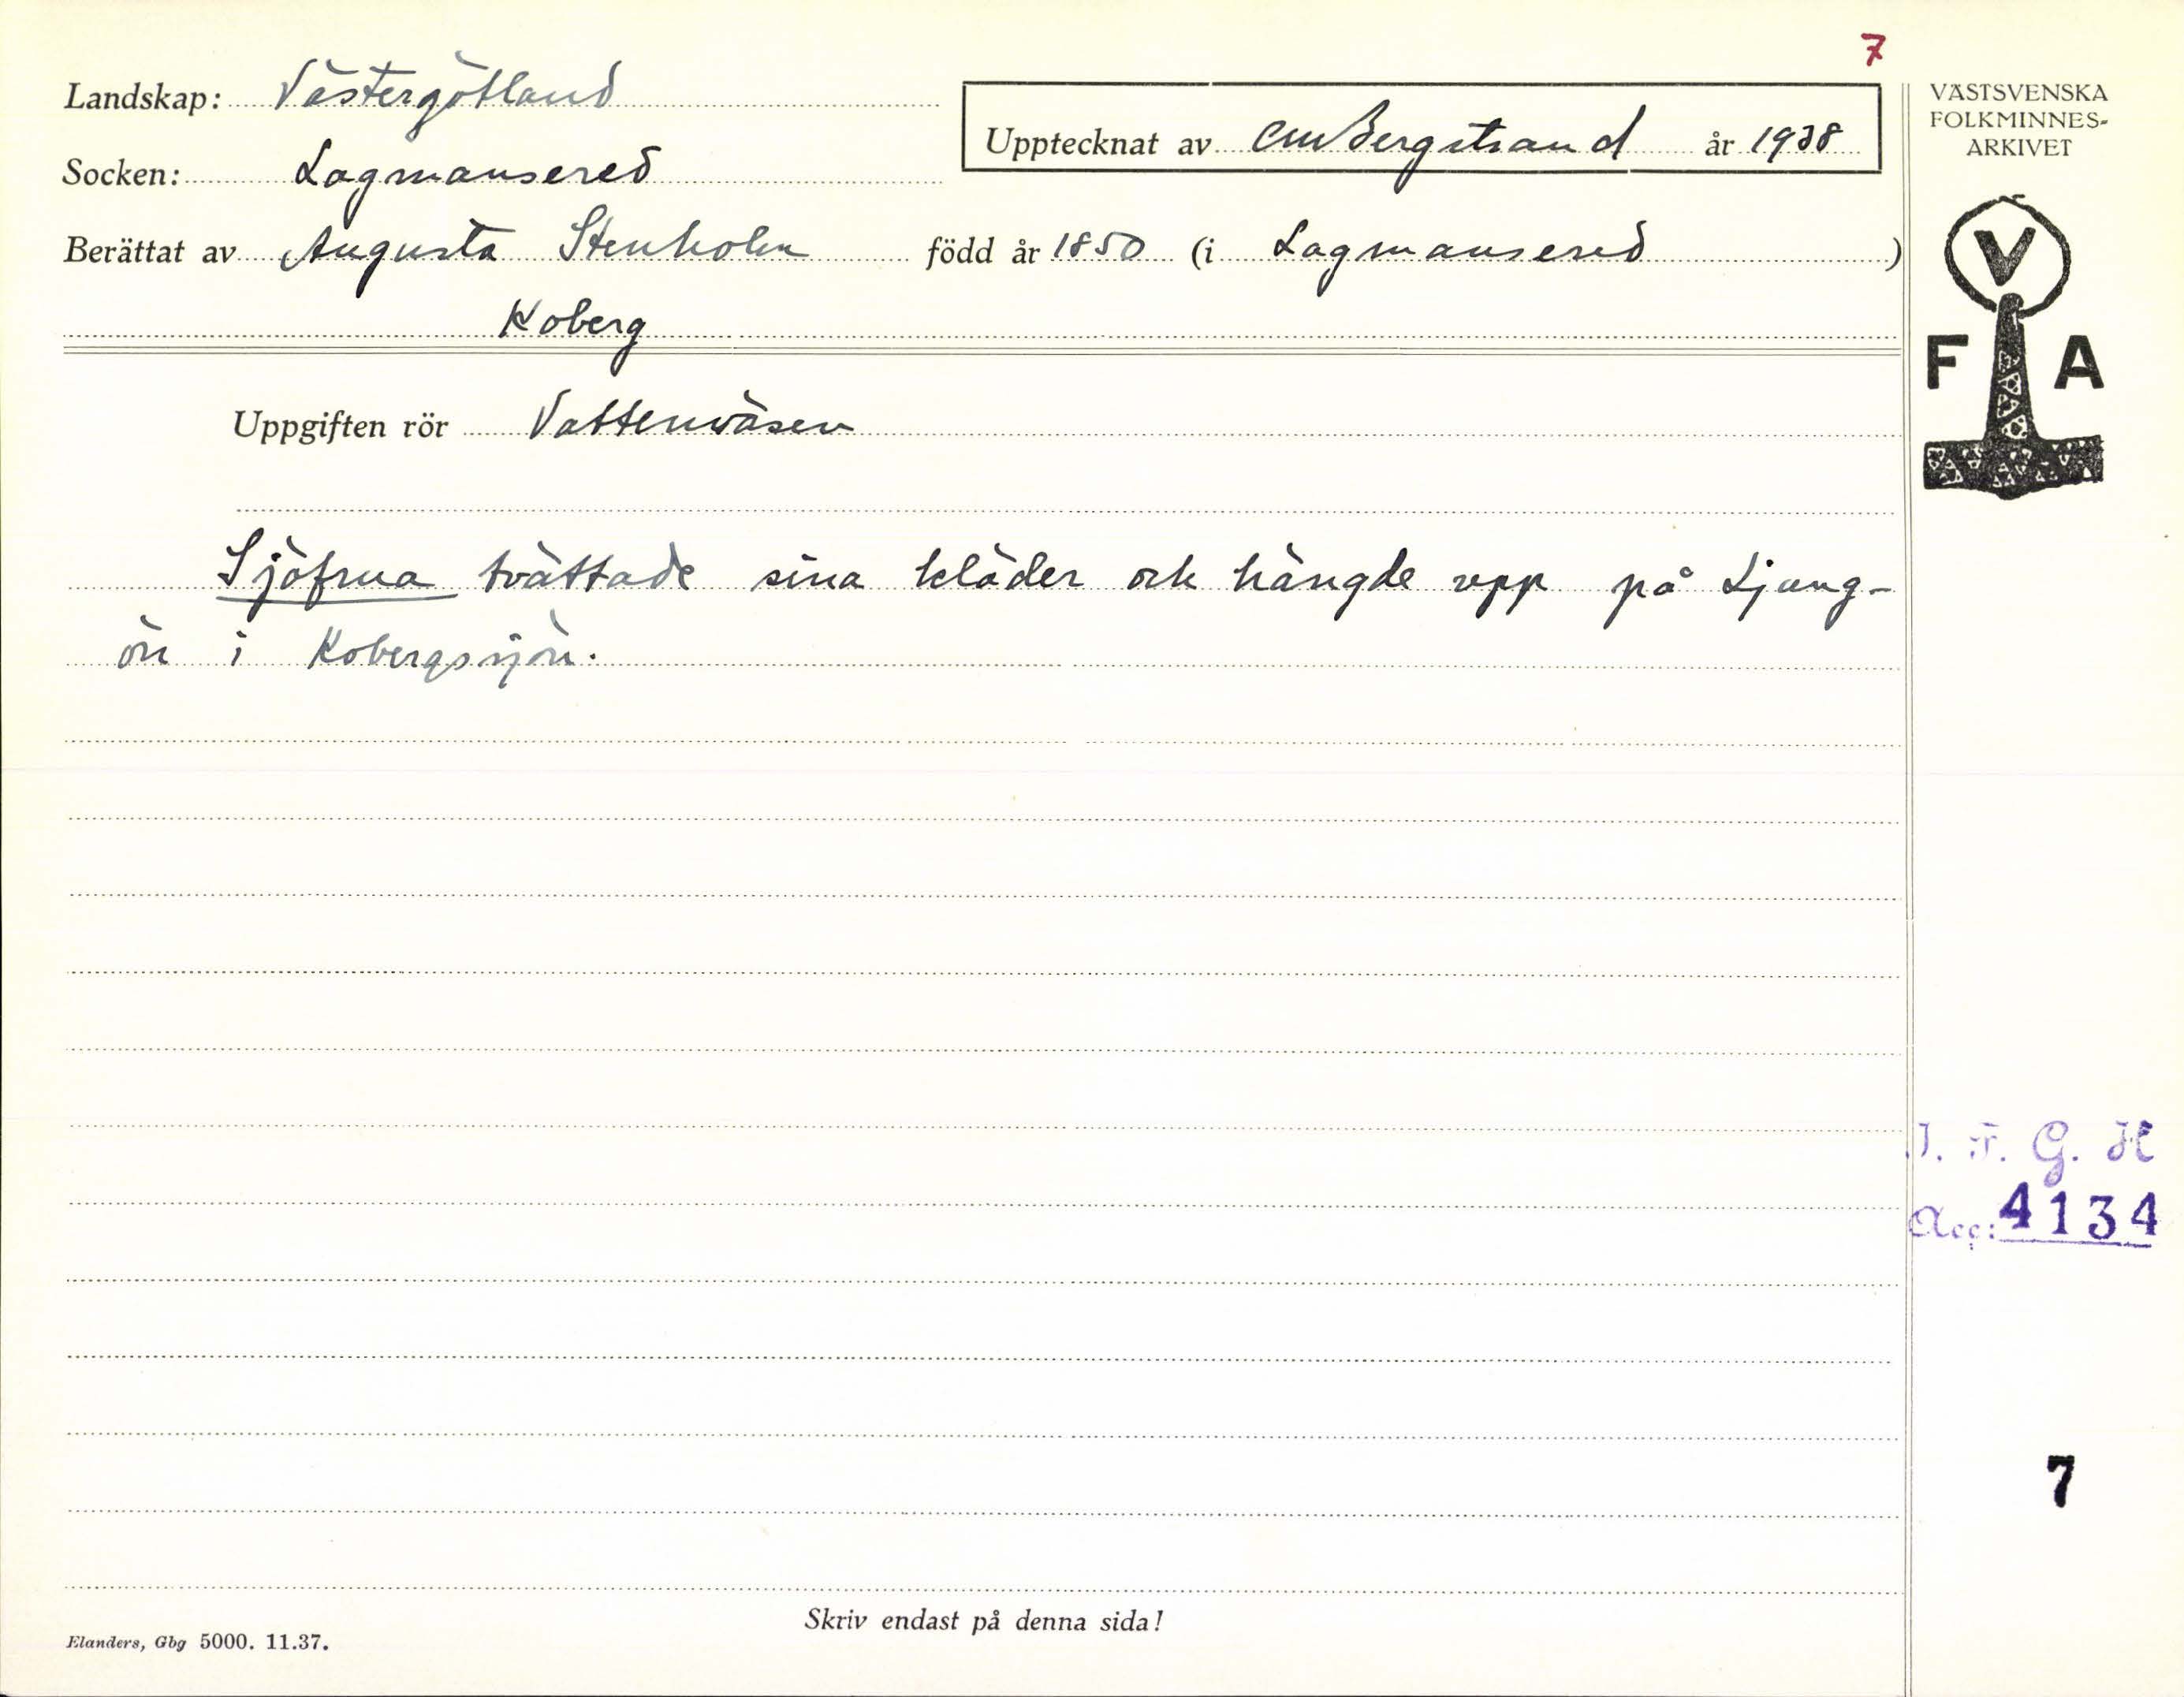 7
Landskap: Västergötland
Upptecknat av CM Bergstrand år 1938
Socken: Lagmansered
Berättat av Augusta Stenholm född år 1850 (i Lagmansered)
Koberg
Uppgiften rör Vattenväsen
Sjöfrua tvättade sina kläder och hängde upp på Ljung-
ön i Kobergssjön.
VÄSTSVENSKA
FOLKMINNES-
ARKIVET
V
F A
I. F. G. H
Acc: 4134
7
Skriv endast på denna sida!
Elanders, Gbg 5000. 11.37.